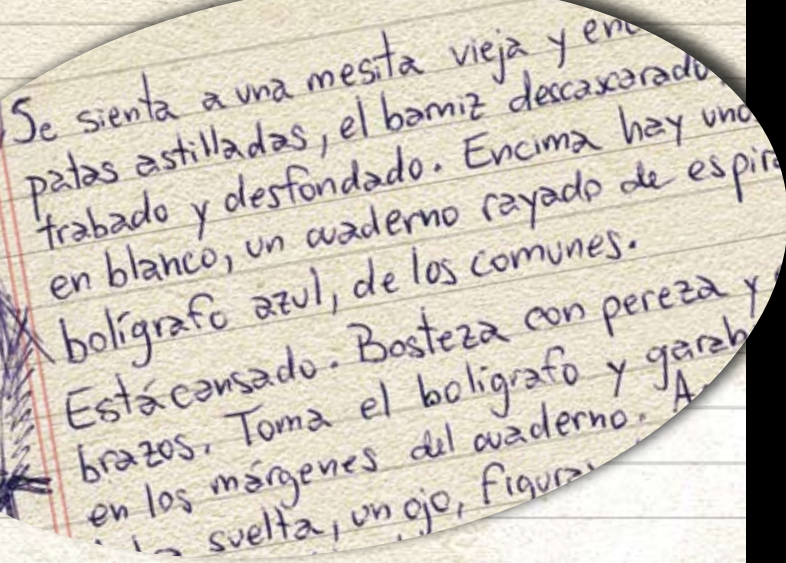 Se sienta a una mesita vieja y
patas astilladas, el barniz descascarado
trabado y desfondado. Encima hay
en blanco, un cuaderno rayado de
bolígrafo azul, de los comunes.
Está cansado. Bosteza con pereza y
brazos. Toma el bolígrafo y
en los márgenes del cuaderno.
suelta, un ojo,